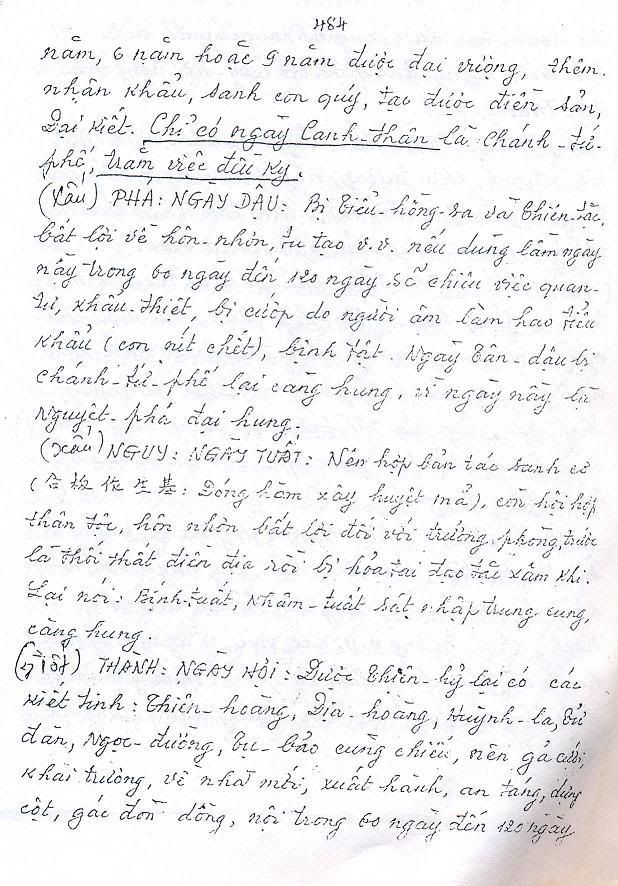 484
năm, 6 năm hoặc 9 năm được đại vượng, thêm.
nhận khẩu, sanh con quý, tạo được điền sản,
Đại kiết. Chỉ có ngày Canh-thân là Chánh-tứ-
phế, trăm việc đều kỵ.
(Xấu) PHÁ: NGÀY DẬU: Bị Tiểu-hồng-sa và Thiên-tặc,
bất lợi về hôn-nhơn, tu tạo v.v. nếu dùng lầm ngày
nầy trong 60 ngày đến 120 ngày sẽ chiêu việc quan-
tư, khẩu-thiệt, bị cướp do người âm làm hao tiểu
khẩu (con nít chết), bịnh tật. Ngày Tân-dậu bị
chánh-tứ-phế lại càng hung, vì ngày nầy là
Nguyệt-phá đại hung.
(Xấu) NGUY: NGÀY TUẤT: Nên hợp bản tác sanh cơ
(合板作生基: Đóng hàm xây huyệt mả), còn hội họp
thân tộc, hôn nhơn bất lợi đối với trưởng phòng, trước
là thối thất điền địa rồi bị hỏa tai đạo tặc xâm khi.
Lại nói: Bính-tuất, Nhâm-tuất sát nhập trung cung,
càng hung.
(Tốt) THÀNH: NGÀY HỢI: Được Thiên-hỷ lại có các
kiết tinh: Thiên-hoàng, Địa-hoàng, Huỳnh-la, Tử
đàn, Ngọc-đường, Tụ-bảo cùng chiếu, nên gả cưới,
khai trương, về nhà mới, xuất hành, an táng, dựng
cột, gác đòn dông, nội trong 60 ngày đến 120 ngày